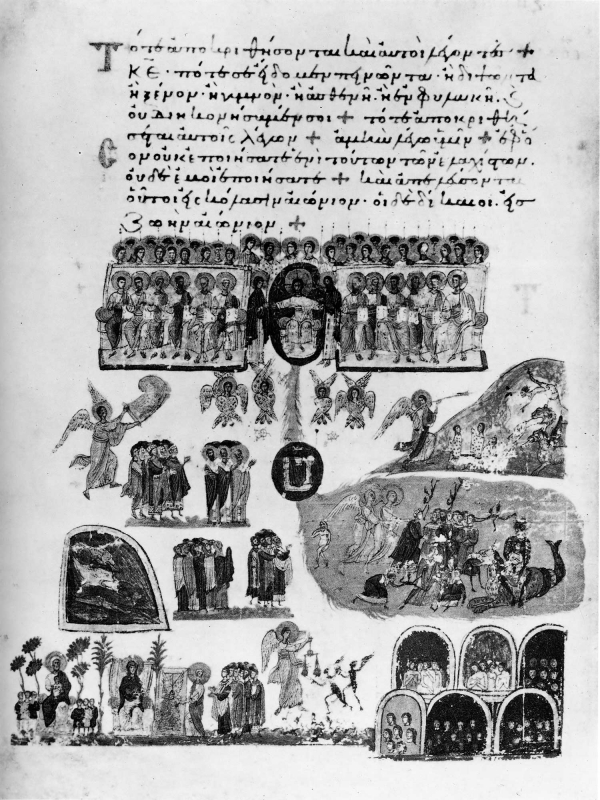 Τότε ἀποκριθήσονται καὶ αὐτοὶ λέγοντες +
ΚΕ · πότε σὲ εἴδομεν πεινῶντα · ἢ διψῶντα
ἢ ξένον · ἢ γυμνὸν · ἢ ἀσθενῆ · ἢ ἐν φυλακῇ · ϗ
οὐ διηκονήσαμέν σοι + τότε ἀποκριθή
σεται αὐτοῖς λέγων + ἀμὴν λέγω ὑμῖν + ἐφ ὅ
σον οὐκ ἐποιήσατε ἑνὶ τούτων τῶν ἐλαχίστων ·
οὐδὲ ἐμοὶ ἐποιήσατε + καὶ ἀπελεύσονται
οὗτοι εἰς κόλασιν αἰώνιον · οἱ δὲ δίκαιοι · εἰς
ζωὴν αἰώνιον +